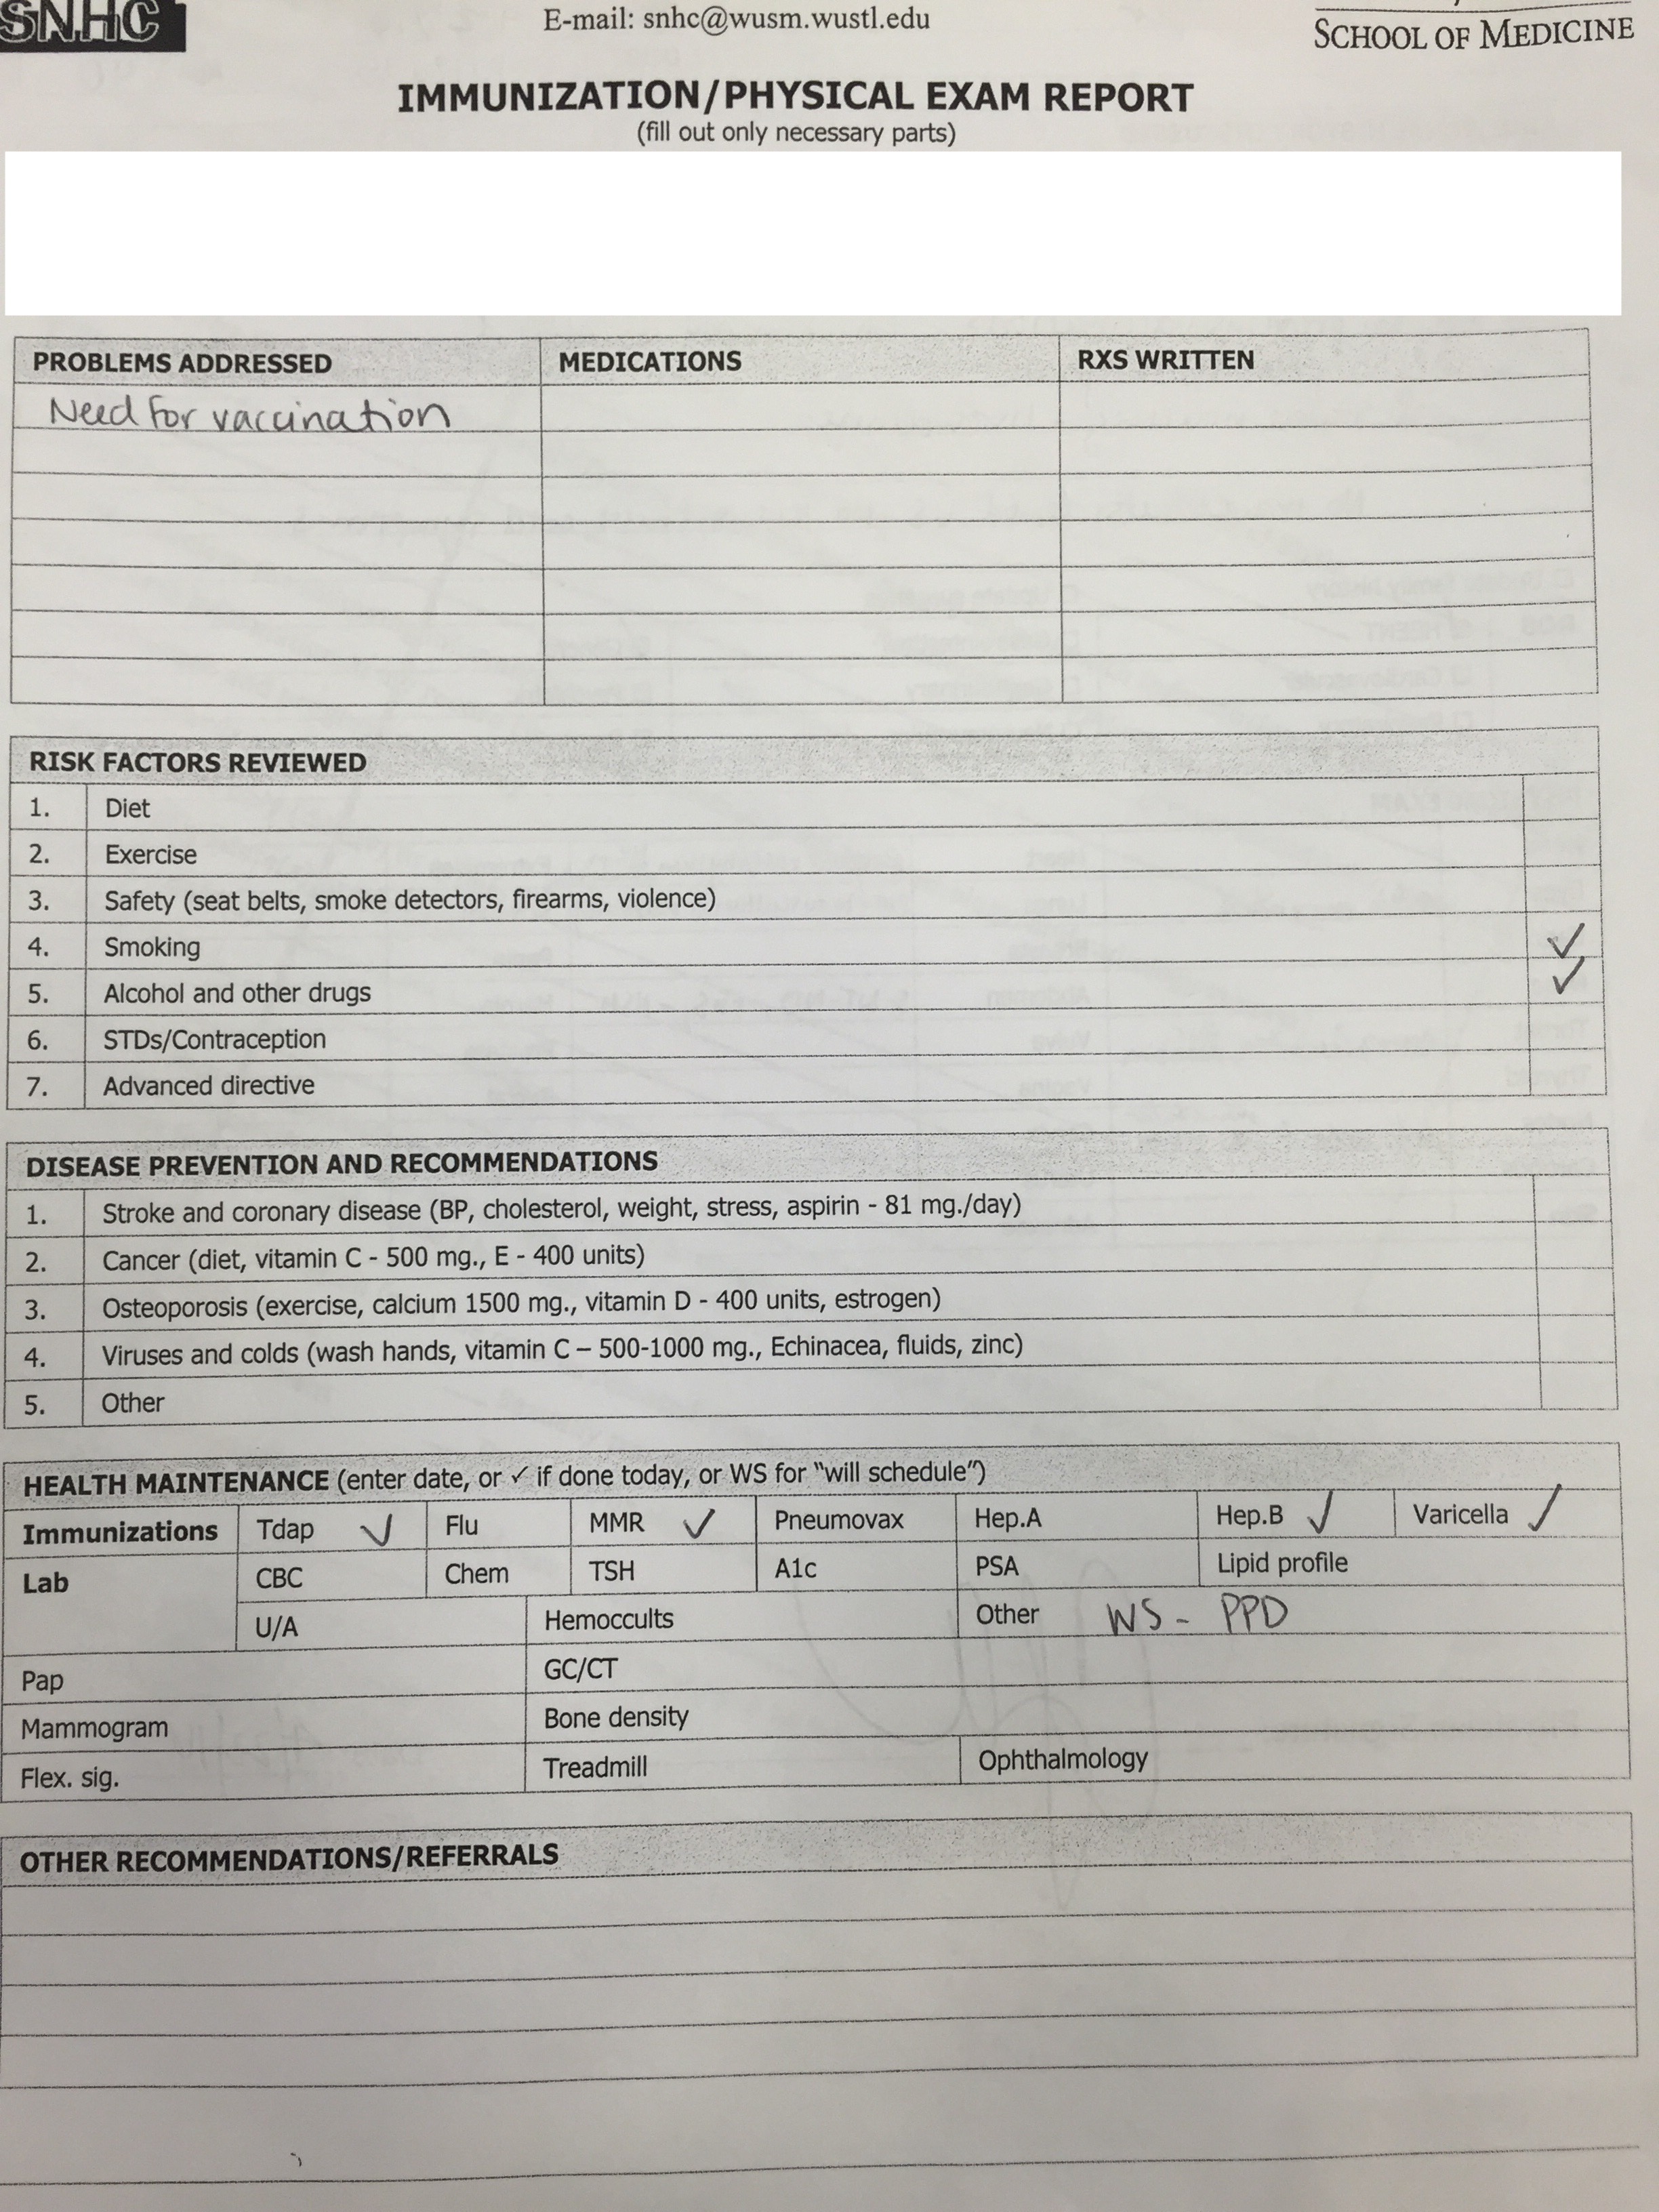 SNHC
E-mail: snhc@wusm.wustl.edu
SCHOOL OF MEDICINE
IMMUNIZATION/PHYSICAL EXAM REPORT
(fill out only necessary parts)
PROBLEMS ADDRESSED MEDICATIONS RXS WRITTEN
Need for vaccination
RISK FACTORS REVIEWED
1. Diet
2. Exercise
3. Safety (seat belts, smoke detectors, firearms, violence)
4. Smoking ✓
5. Alcohol and other drugs ✓
6. STDs/Contraception
7. Advanced directive
DISEASE PREVENTION AND RECOMMENDATIONS
1. Stroke and coronary disease (BP, cholesterol, weight, stress, aspirin - 81 mg./day)
2. Cancer (diet, vitamin C - 500 mg., E - 400 units)
3. Osteoporosis (exercise, calcium 1500 mg., vitamin D - 400 units, estrogen)
4. Viruses and colds (wash hands, vitamin C – 500-1000 mg., Echinacea, fluids, zinc)
5. Other
HEALTH MAINTENANCE (enter date, or ✓ if done today, or WS for "will schedule")
Immunizations Tdap ✓ Flu MMR ✓ Pneumovax Hep.A Hep.B ✓ Varicella ✓
Lab CBC Chem TSH A1c PSA Lipid profile
U/A Hemoccults Other WS - PPD
Pap GC/CT
Mammogram Bone density
Flex. sig. Treadmill Ophthalmology
OTHER RECOMMENDATIONS/REFERRALS